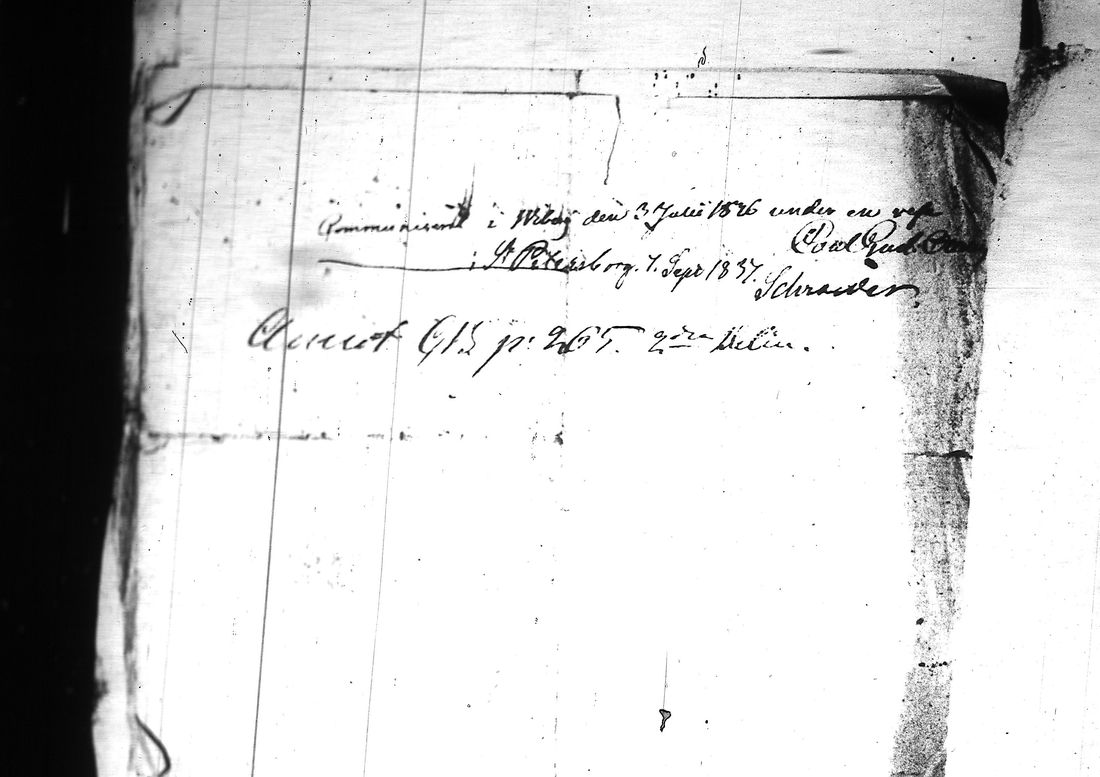 Communicerat i Wiborg den 3 Julii 1836 under en resa
Carl
i St Petersborg. 7. Sept 1837.
Schroeder
Annot p: 265. 2dra Delen.